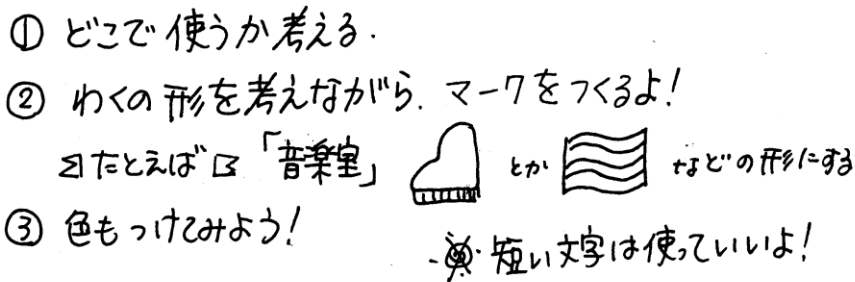 ① どこで使うか考える.
② わくの形を考えながら. マークをつくるよ!
たとえば 「音楽室」 とか などの形にする
③ 色もつけてみよう!
※ 短い文字は使っていいよ!